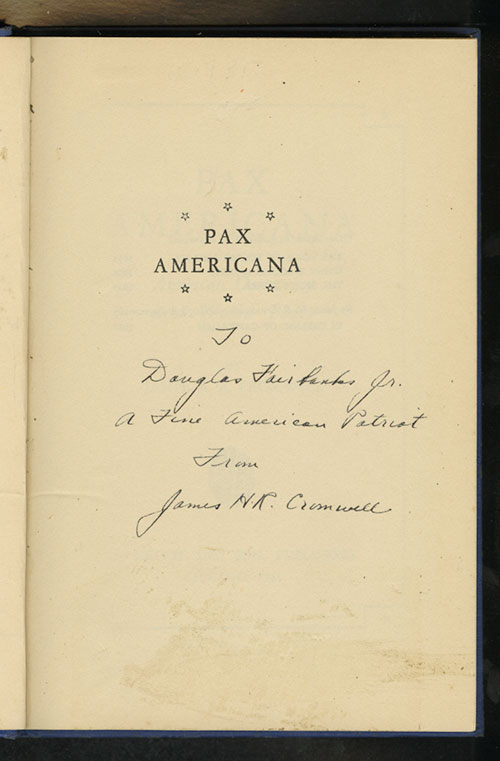 PAX
AMERICANA
To
Douglas Fairbanks Jr.
A Fine American Patriot
From
James H.R. Cromwell